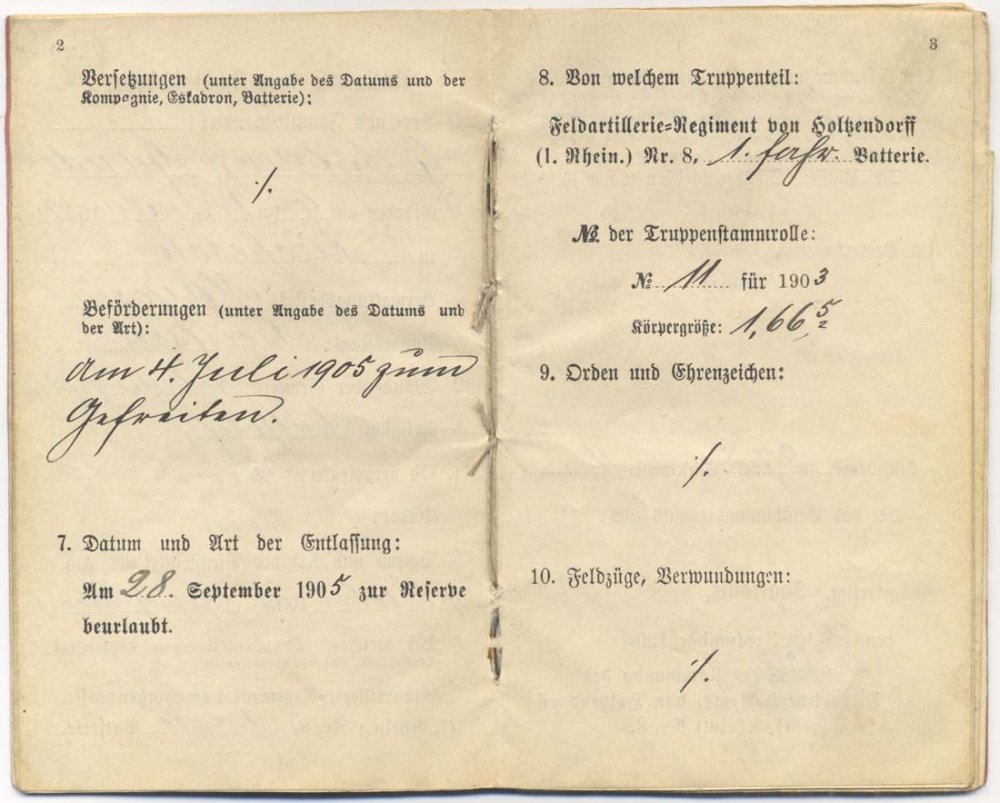 2
Versetzungen (unter Angabe des Datums und der
Kompagnie, Eskadron, Batterie):
./.
Beförderungen (unter Angabe des Datums und
der Art):
Am 4. Juli 1905 zum
Gefreiten.
7. Datum und Art der Entlassung:
Am 28. September 1905 zur Reserve
beurlaubt.
3
8. Von welchem Truppenteil:
Feldartillerie-Regiment von Holtzendorff
(1. Rhein.) Nr. 8, 1. fahr. Batterie.
№ der Truppenstammrolle:
№ 11 für 1903
Körpergröße: 1,66⁵
9. Orden und Ehrenzeichen:
./.
10. Feldzüge, Verwundungen:
./.